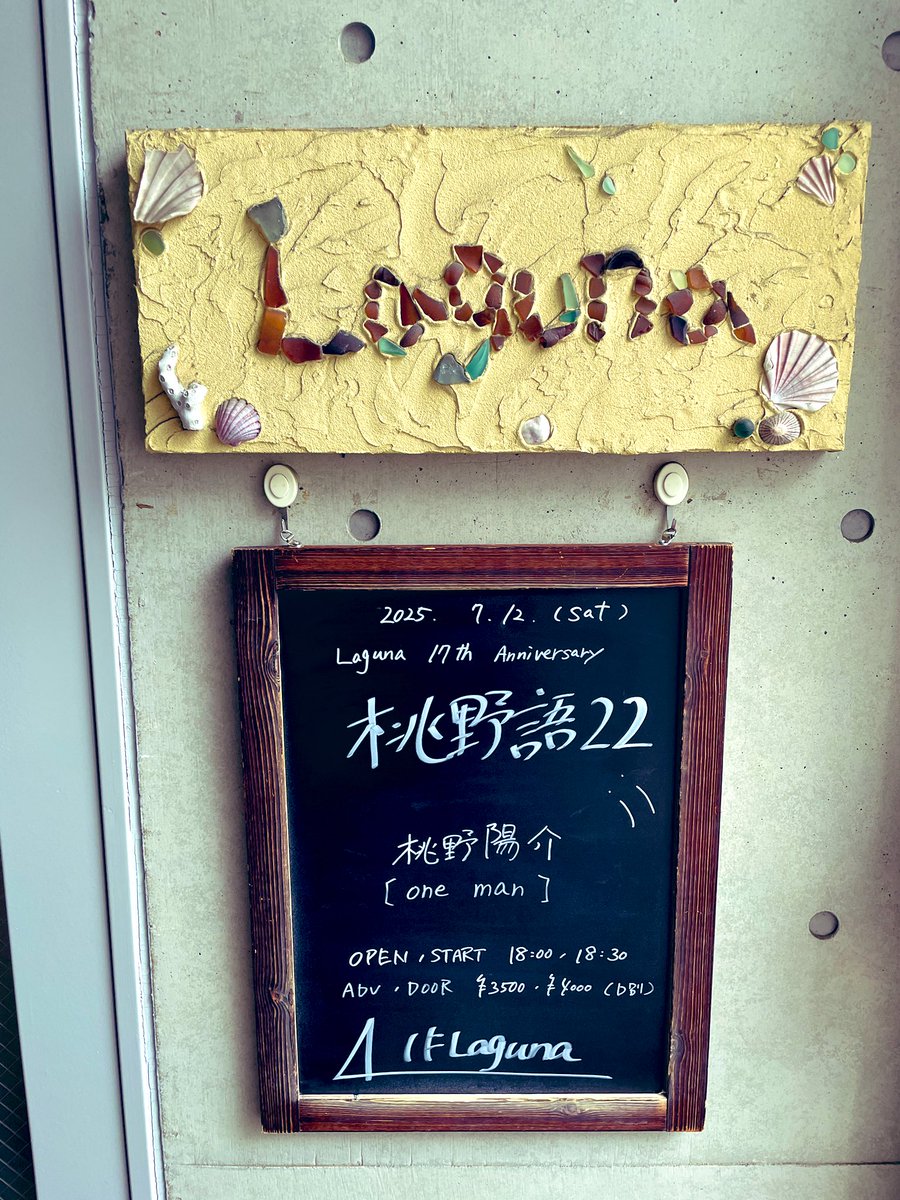 Laguna
2025. 7.12.(sat)
Laguna 17th Anniversary
桃野語22
桃野陽介
[one man]
OPEN, START 18:00, 18:30
ADV, DOOR ¥3500, ¥4000 (D別)
1F Laguna